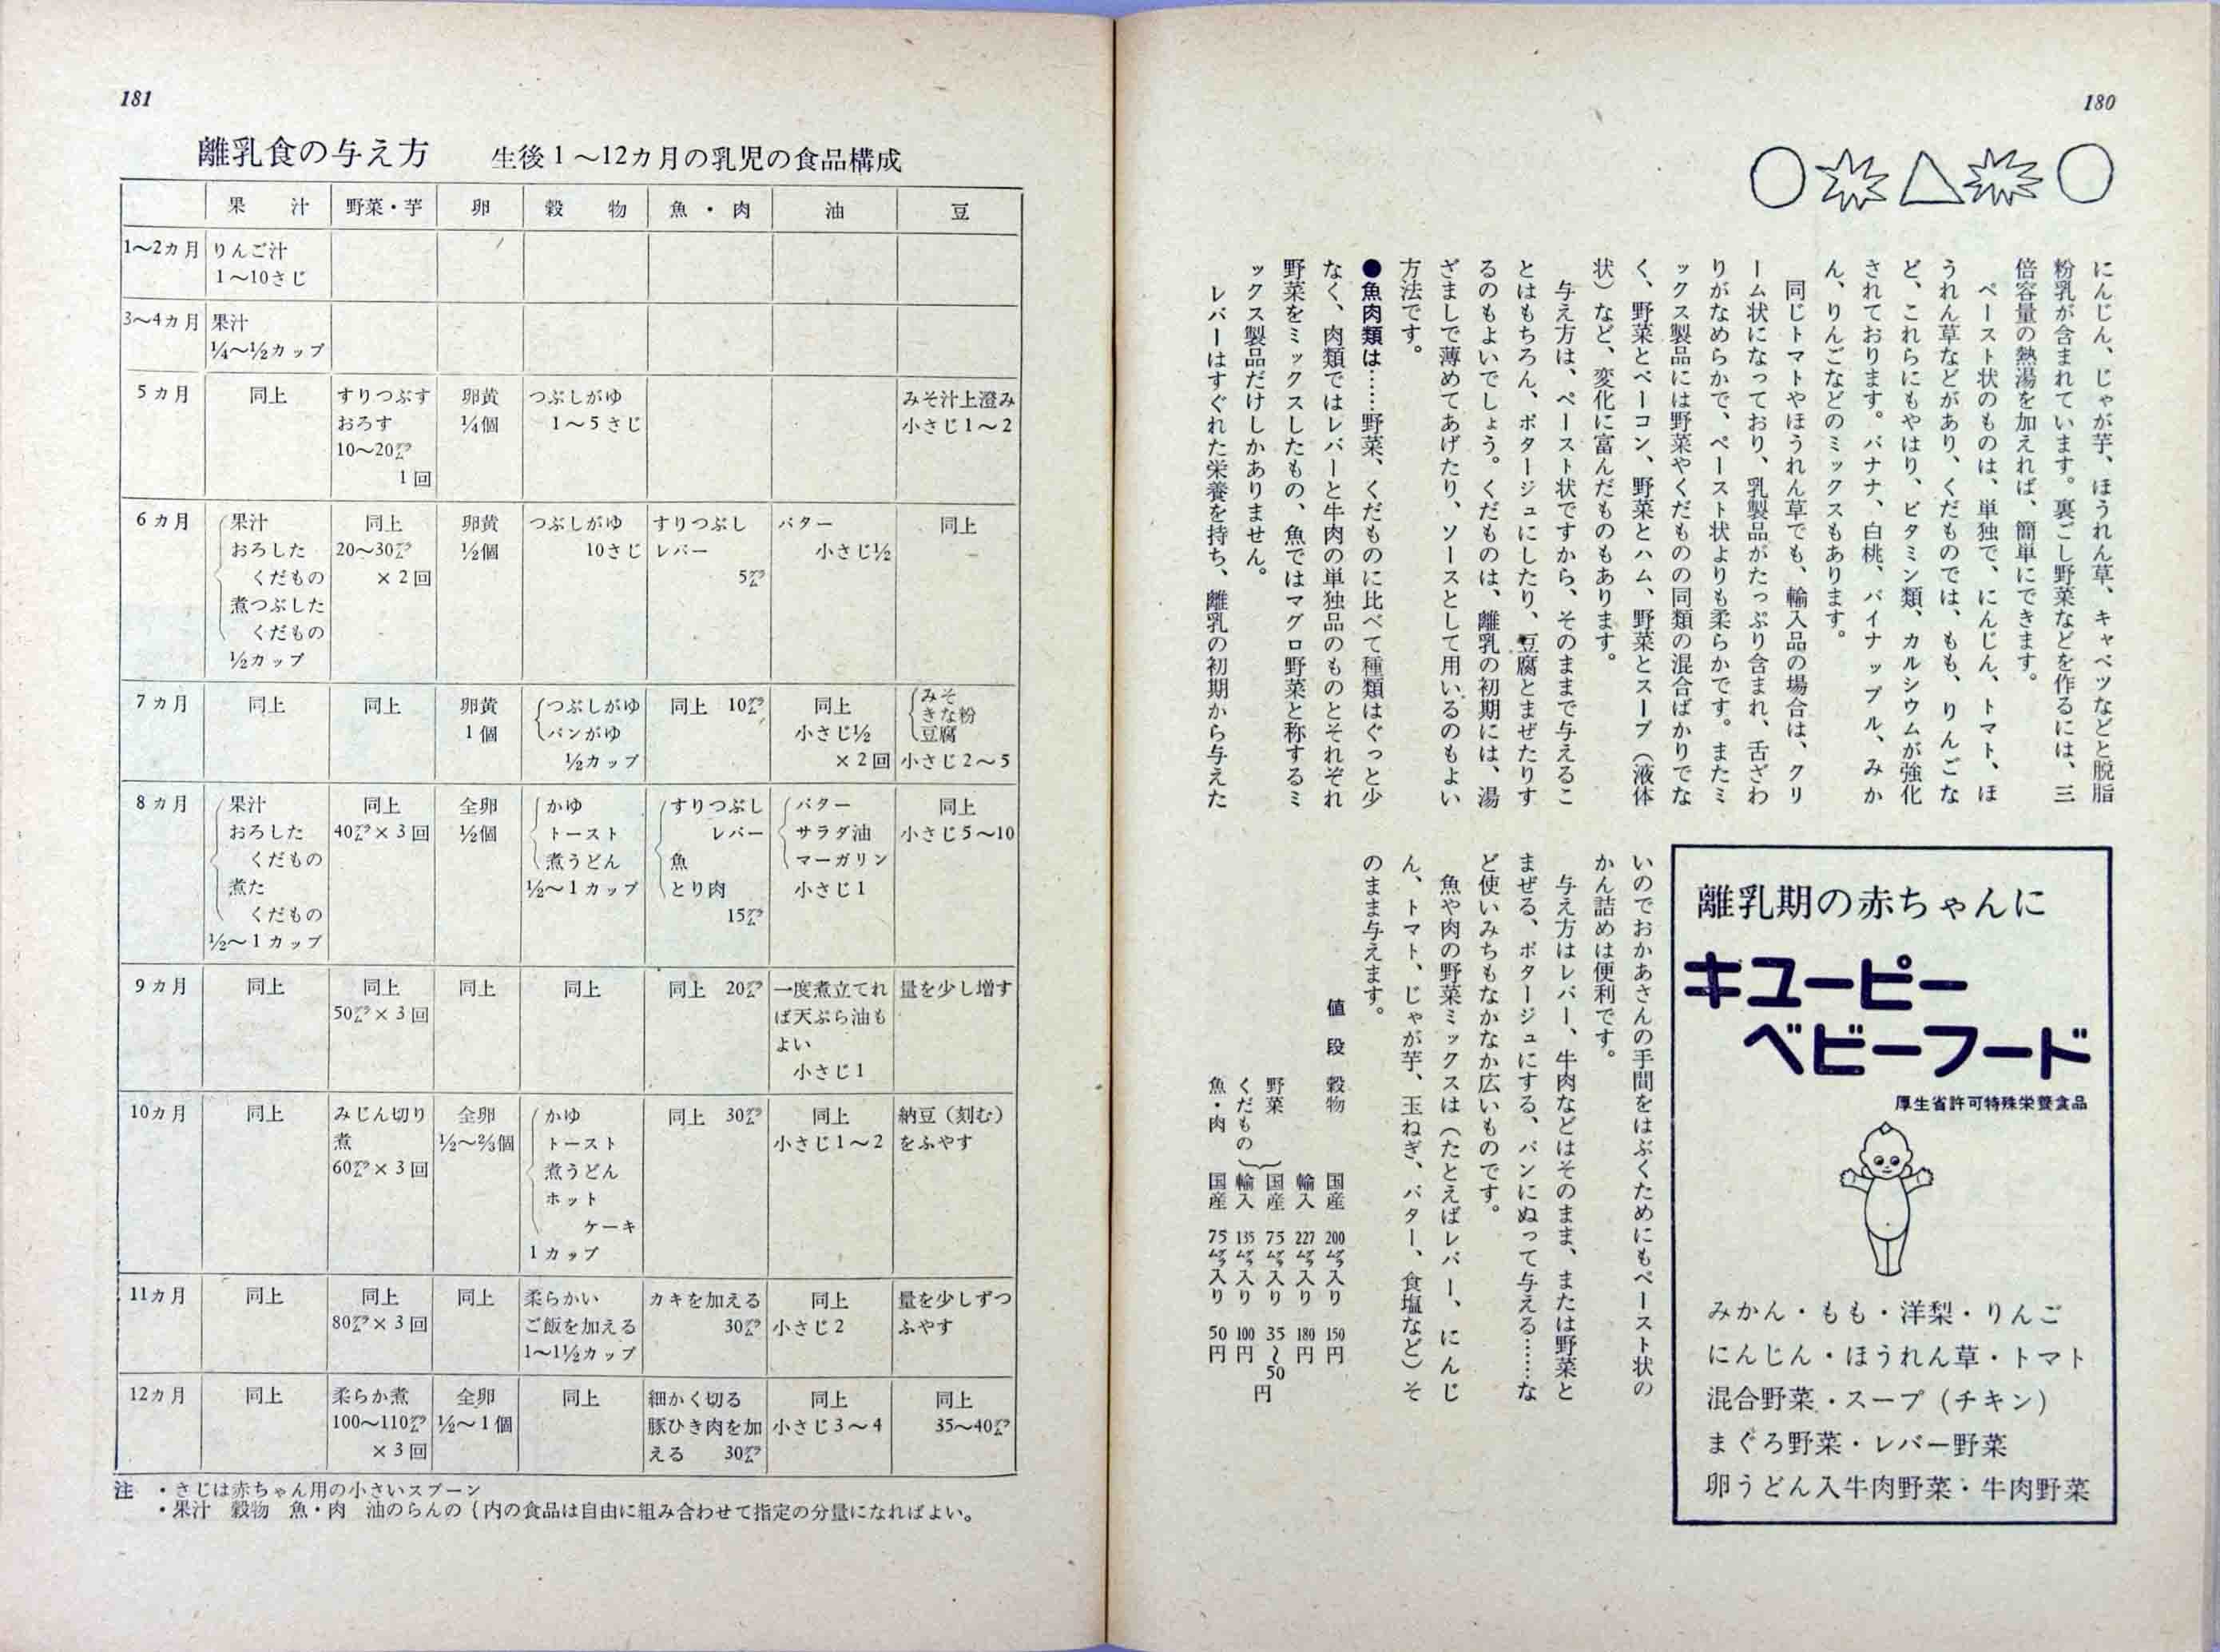 180
にんじん、じゃが芋、ほうれん草、キャベツなどと脱脂
粉乳が含まれています。裏ごし野菜などを作るには、三
倍容量の熱湯を加えれば、簡単にできます。
ペースト状のものは、単独で、にんじん、トマト、ほ
うれん草などがあり、くだものでは、もも、りんごな
ど、これらにもやはり、ビタミン類、カルシウムが強化
されております。バナナ、白桃、パイナップル、みか
ん、りんごなどのミックスもあります。
同じトマトやほうれん草でも、輸入品の場合は、クリ
ーム状になっており、乳製品がたっぷり含まれ、舌ざわ
りがなめらかで、ペースト状よりも柔らかです。またミ
ックス製品には野菜やくだものの同類の混合ばかりでな
く、野菜とベーコン、野菜とハム、野菜とスープ（液体
状）など、変化に富んだものもあります。
与え方は、ペースト状ですから、そのままで与えるこ
とはもちろん、ポタージュにしたり、豆腐とまぜたりす
るのもよいでしょう。くだものは、離乳の初期には、湯
ざましで薄めてあげたり、ソースとして用いるのもよい
方法です。
●魚肉類は……野菜、くだものに比べて種類はぐっと少
なく、肉類ではレバーと牛肉の単独品のものとそれぞれ
野菜をミックスしたもの、魚ではマグロ野菜と称するミ
ックス製品だけしかありません。
レバーはすぐれた栄養を持ち、離乳の初期から与えた
いのでおかあさんの手間をはぶくためにもペースト状の
かん詰めは便利です。
与え方はレバー、牛肉などはそのまま、または野菜と
まぜる、ポタージュにする、パンにぬって与える……な
ど使いみちもなかなか広いものです。
魚や肉の野菜ミックスは（たとえばレバー、にんじ
ん、トマト、じゃが芋、玉ねぎ、バター、食塩など）そ
のまま与えます。
値段 穀物 国産 200グラム入り 150円
輸入 227グラム入り 180円
野菜 国産 75グラム入り 35〜50円
くだもの 輸入 135グラム入り 100円
魚・肉 国産 75グラム入り 50円
離乳期の赤ちゃんに
キユーピー
ベビーフード
厚生省許可特殊栄養食品
みかん・もも・洋梨・りんご
にんじん・ほうれん草・トマト
混合野菜・スープ（チキン）
まぐろ野菜・レバー野菜
卵うどん入牛肉野菜・牛肉野菜
181
離乳食の与え方 生後1〜12カ月の乳児の食品構成
果汁 野菜・芋 卵 穀物 魚・肉 油 豆
1〜2カ月 りんご汁
1〜10さじ
3〜4カ月 果汁
¼〜½カップ
5カ月 同上 すりつぶす 卵黄 つぶしがゆ みそ汁上澄み
おろす ¼個 1〜5さじ 小さじ1〜2
10〜20グラム
1回
6カ月 果汁 同上 卵黄 つぶしがゆ すりつぶし バター 同上
おろした 20〜30グラム ½個 10さじ レバー 小さじ½
くだもの ×2回 5グラム
煮つぶした
くだもの
½カップ
7カ月 同上 同上 卵黄 つぶしがゆ 同上 10グラム 同上 みそ
1個 パンがゆ 小さじ½ きな粉
½カップ ×2回 豆腐
小さじ2〜5
8カ月 果汁 同上 全卵 かゆ すりつぶし バター 同上
おろした 40グラム×3回 ½個 トースト レバー サラダ油 小さじ5〜10
くだもの 煮うどん 魚 マーガリン
煮た ½〜1カップ とり肉 小さじ1
くだもの 15グラム
½〜1カップ
9カ月 同上 同上 同上 同上 同上 20グラム 一度煮立てれ 量を少し増す
50グラム×3回 ば天ぷら油も
よい
小さじ1
10カ月 同上 みじん切り 全卵 かゆ 同上 30グラム 同上 納豆（刻む）
煮 ½〜⅔個 トースト 小さじ1〜2 をふやす
60グラム×3回 煮うどん
ホット
ケーキ
1カップ
11カ月 同上 同上 同上 柔らかい カキを加える 同上 量を少しずつ
80グラム×3回 ご飯を加える 30グラム 小さじ2 ふやす
1〜1½カップ
12カ月 同上 柔らか煮 全卵 同上 細かく切る 同上 同上
100〜110グラム ½〜1個 豚ひき肉を加 小さじ3〜4 35〜40グラム
×3回 える 30グラム
注 ・さじは赤ちゃん用の小さいスプーン
・果汁 穀物 魚・肉 油のらんの｛内の食品は自由に組み合わせて指定の分量になればよい。